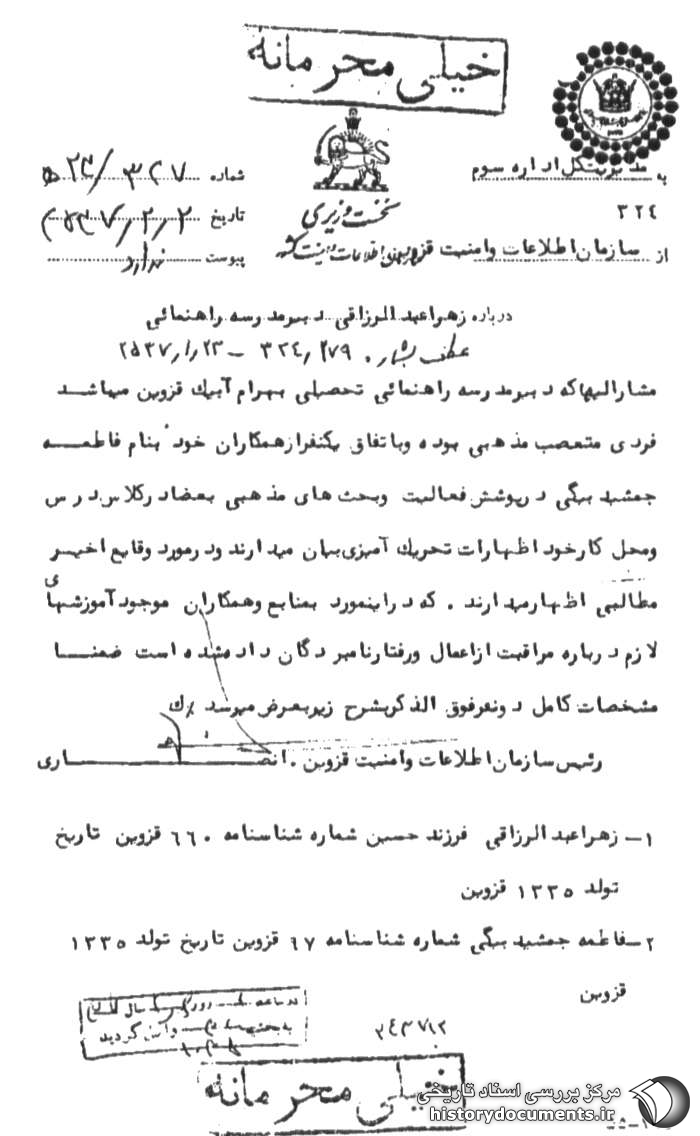 خیلی محرمانه
به مدیریت کل اداره سوم
۳۲۴
از سازمان اطلاعات وامنیت قزوین
نخست وزیری
سازمان اطلاعات و امنیت کشور
شماره ۳۲۷/۲۴ه
تاریخ ۲/۲/۳۷
پیوست ندارد
درباره زهرا عبدالرزاقی دبیر مدرسه راهنمائی
عطف بشماره ۳۲۴/۲۷۹ – ۲۵۳۷/۱/۲۳
مشارالیها که دبیر مدرسه راهنمائی تحصیلی بهرام آبیک قزوین میباشد
فردی متعصب مذهبی بوده وباتفاق یکنفر ازهمکاران خود بنام فاطمه
جمشید بیگی درپوشش فعالیت وبحث های مذهبی بعضا درکلاس درس
ومحل کارخود اظهارات تحریک آمیزی بیان میدارند ودرمورد وقایع اخیر
مطالبی اظهارمیدارند . که دراینمورد بمنابع وهمکاران موجود آموزشهای
لازم درباره مراقبت ازاعمال ورفتارنامبردگان داده شده است ضمنا
مشخصات کامل دونفرفوق الذکربشرح زیربعرض میرسد
رئیس سازمان اطلاعات وامنیت قزوین . انصاری
۱– زهرا عبدالرزاقی فرزند حسین شماره شناسنامه ۶۶۰ قزوین تاریخ
تولد ۱۳۳۵ قزوین
۲–فاطمه جمشید بیگی شماره شناسنامه ۶۷ قزوین تاریخ تولد ۱۳۳۵
قزوین
خیلی محرمانه
مرکز بررسی اسناد تاریخی
historydocuments.ir